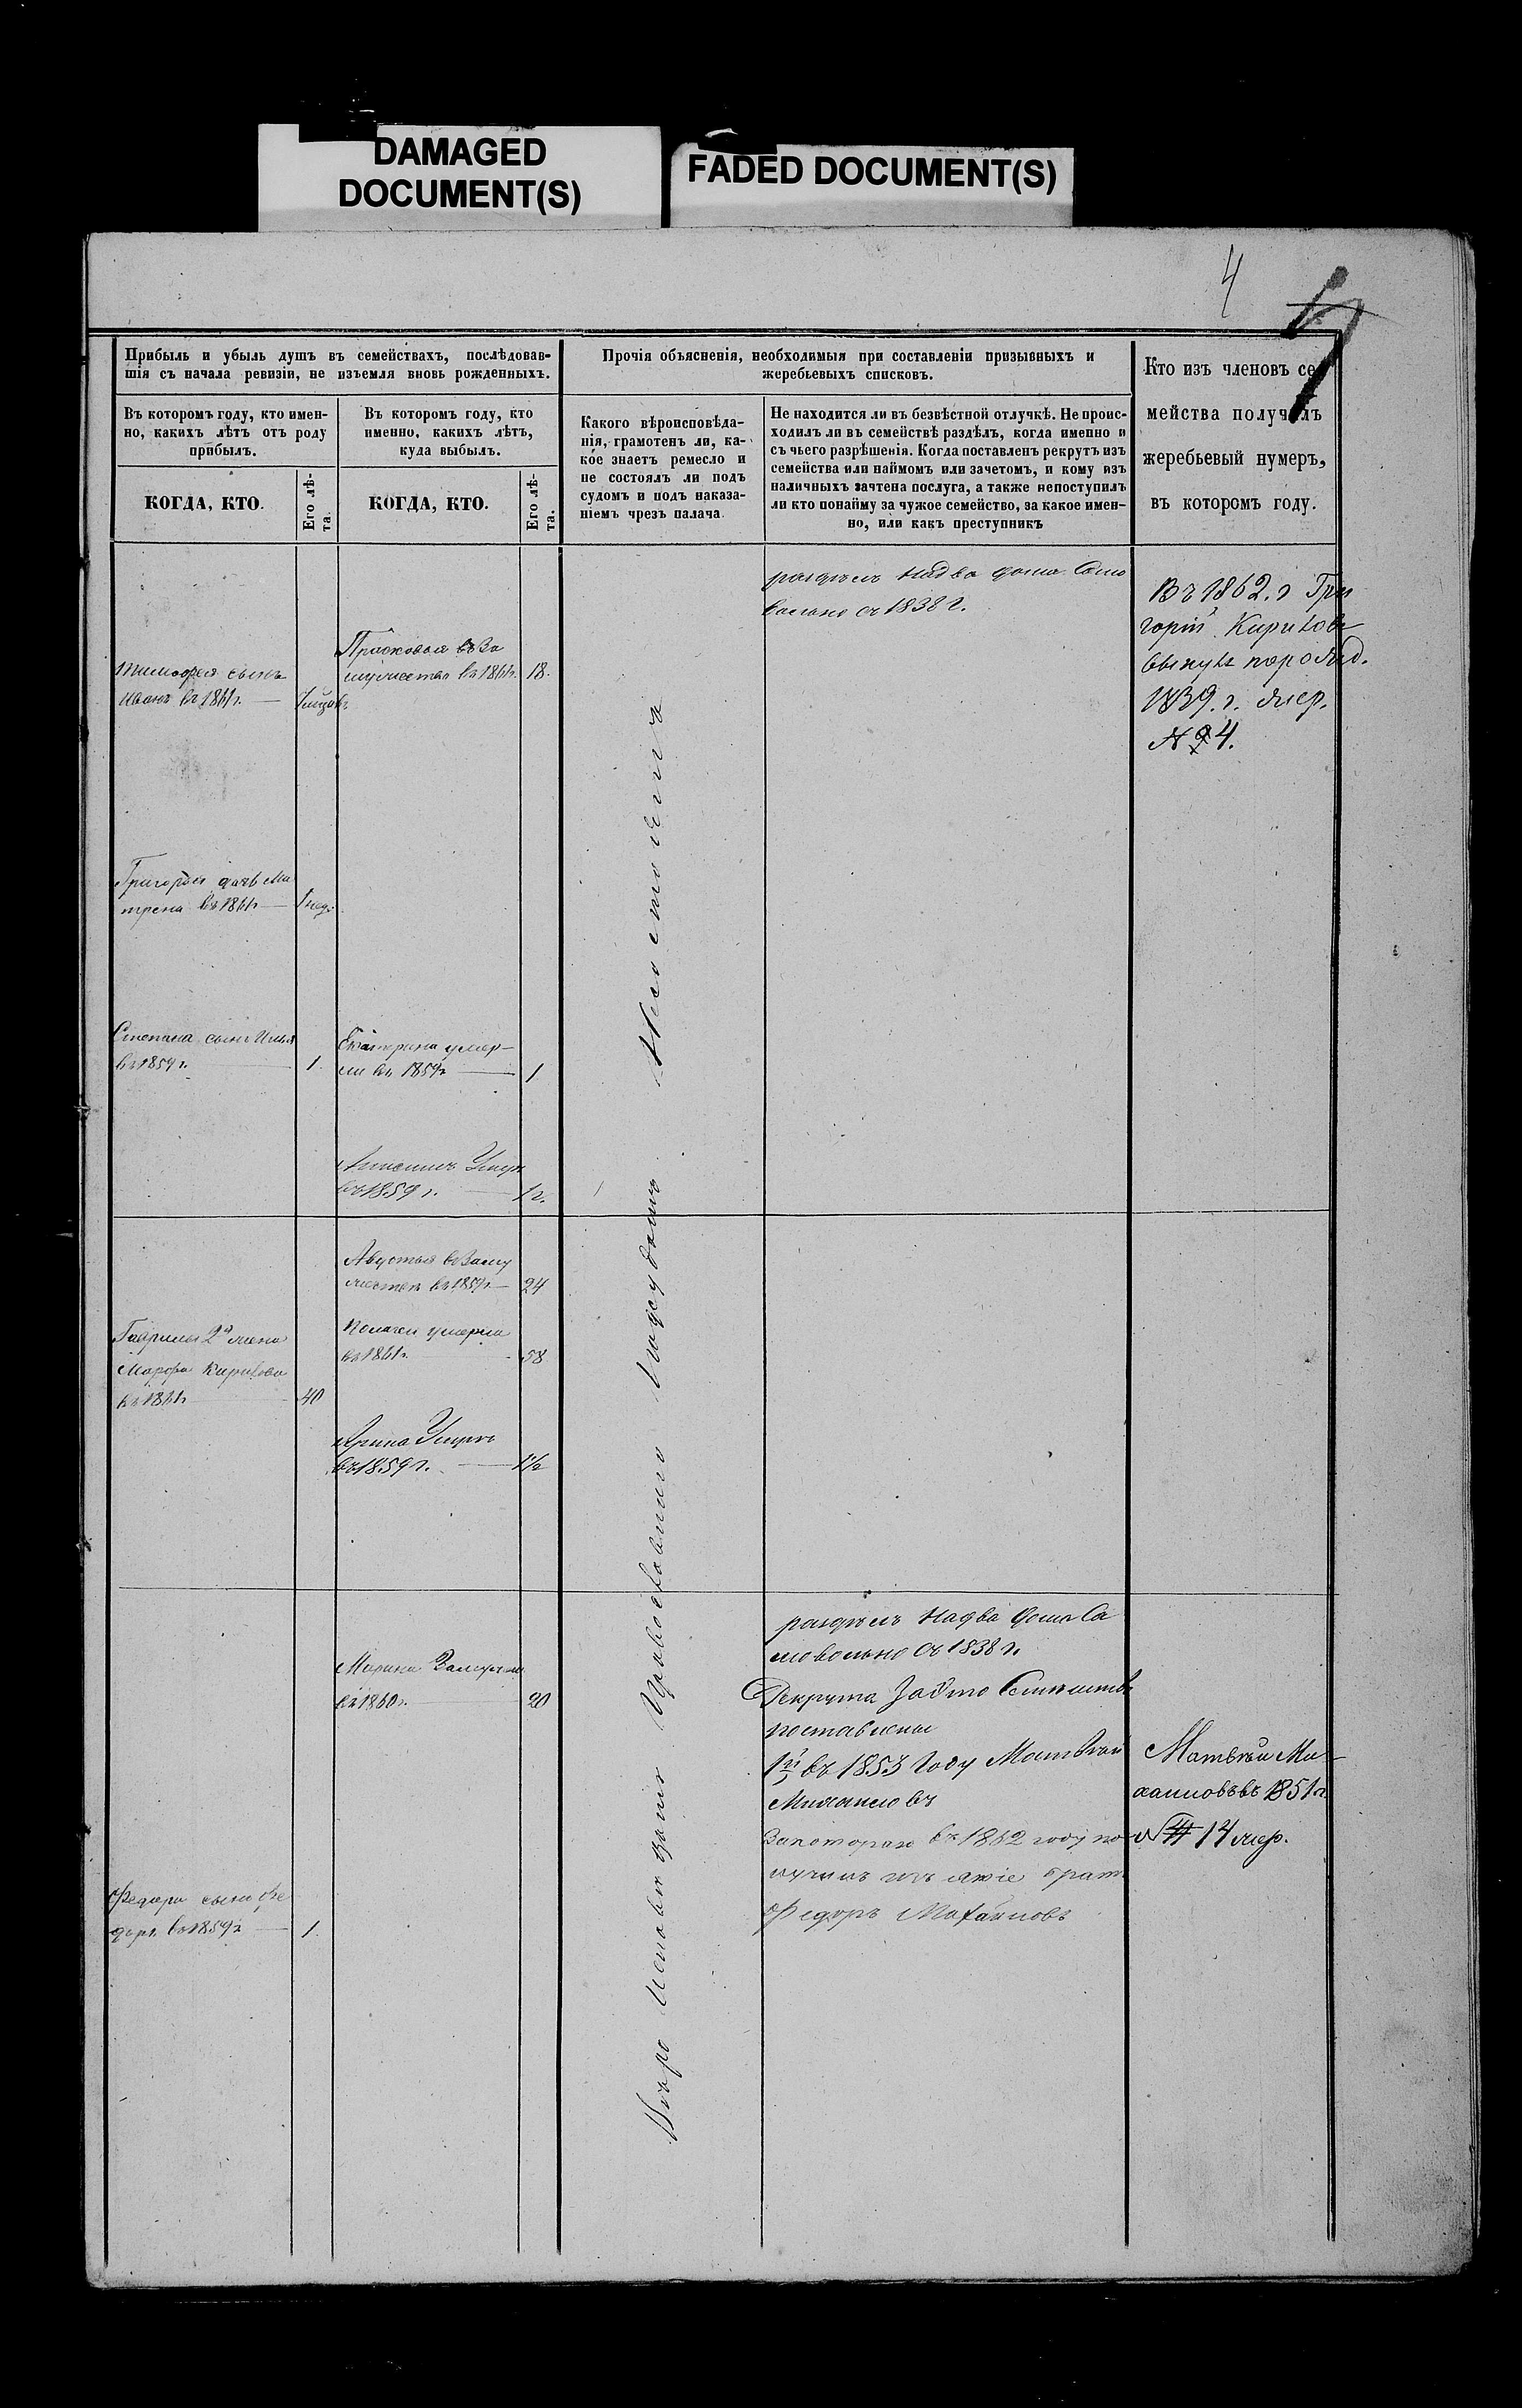 DAMAGED
DOCUMENT(S)
FADED DOCUMENT(S)
4
Прибыль и убыль душъ въ семействахъ, послѣдовав-
шія съ начала ревизіи, не изъемля вновь рожденныхъ.
Въ которомъ году, кто имен-
но, какихъ лѣтъ отъ роду
прибылъ.
КОГДА, КТО.
Его лѣ-
та.
Въ которомъ году, кто
именно, какихъ лѣтъ,
куда выбылъ.
КОГДА, КТО.
Его лѣ-
та.
Прочія объясненія, необходимыя при составленіи призывныхъ и
жеребьевыхъ списковъ.
Какого вѣроисповѣда-
нія, грамотенъ ли, ка-
кое знаетъ ремесло и
не состоялъ ли подъ
судомъ и подъ наказа-
ніемъ чрезъ палача.
Не находится ли въ безвѣстной отлучкѣ. Не проис-
ходилъ ли въ семействѣ раздѣлъ, когда именно и
съ чьего разрѣшенія. Когда поставленъ рекрутъ изъ
семейства или наймомъ или зачетомъ, и кому изъ
наличныхъ зачтена послуга, а также непоступилъ
ли кто понайму за чужое семейство, за какое имен-
но, или какъ преступникъ
Кто изъ членовъ се-
мейства получилъ
жеребьевый нумеръ,
въ которомъ году.
Тимофея сынъ
Иванъ въ 1861г.
Григорья дочь Ма
трена въ 1861г.
1 нед.
Степана сынъ Илья
въ 1859г.
1
Гаврилы 2я жена
Марфа Кирилова
въ 1861г.
40
Федора сынъ Фе
доръ въ 1859г.
1.
Прасковья въ За
мужество въ 1861г.
18.
Екатерина умер-
ла въ 1859г.
1
въ 1859 г.
1 г.
Авдотья въ Заму
жество въ 1859г.
24
Пелагея умерла
въ 1861г.
58
Арина Умерла
въ 1859 г.
1½
Марина Замужъ
въ 1860г.
20
Вѣро Исповѣданія Православнаго
раздѣлъ На два дома Само
вольно съ 1838 г.
раздѣлъ На два дома Са
мовольно съ 1838 г.
Рекрута За это Семейство
поставлены
1й въ 1853 Году Матвѣй
Михайловъ
За которого въ 1862 году по
братъ
Федоръ Михайловъ
Въ 1862. г Гри
горій Кириловъ
вынулъ
1839. г. жер.
№ 4.
Матвѣй Ми-
хайловъ въ 1851 г.
№ 14 жер.